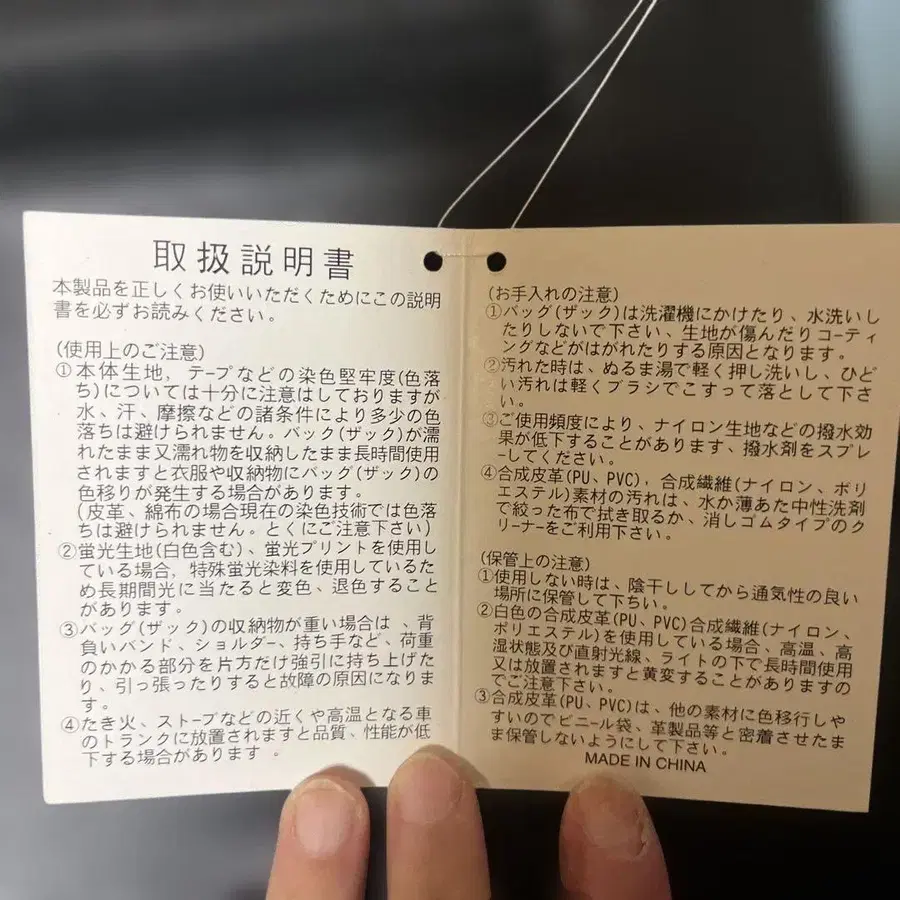 取扱説明書
本製品を正しくお使いいただくためにこの説明
書を必ずお読みください。
(使用上のご注意)
①本体生地，テープなどの染色堅牢度(色落
ち)については十分に注意はしておりますが
水、汗、摩擦などの諸条件により多少の色
落ちは避けられません。バック(ザック)が濡
れたまま又濡れ物を収納したまま長時間使用
されますと衣服や収納物にバッグ(ザック)の
色移りが発生する場合があります。
(皮革、綿布の場合現在の染色技術では色落
ちは避けられません。とくにご注意下さい)
②蛍光生地(白色含む)、蛍光プリントを使用し
ている場合，特殊蛍光染料を使用しているた
め長期間光に当たると変色、退色すること
があります。
③バッグ(ザック)の収納物が重い場合は、背
負いバンド、ショルダー、持ち手など、荷重
のかかる部分を片方だけ強引に持ち上げた
り、引っ張ったりすると故障の原因になりま
す。
④たき火、ストーブなどの近くや高温となる車
のトランクに放置されますと品質、性能が低
下する場合があります。
(お手入れの注意)
①バッグ(ザック)は洗濯機にかけたり、水洗いし
たりしないで下さい、生地が傷んだりコーティ
ングなどがはがれたりする原因となります。
②汚れた時は、ぬるま湯で軽く押し洗いし、ひど
い汚れは軽くブラシでこすって落として下さ
い。
③ご使用頻度により、ナイロン生地などの撥水効
果が低下することがあります、撥水剤をスプレ
ーしてください。
④合成皮革(PU、PVC)，合成繊維(ナイロン、ポリ
エステル)素材の汚れは、水か薄あた中性洗剤
で絞った布で拭き取るか、消しゴムタイプのク
リーナーをご利用下さい。
(保管上の注意)
①使用しない時は、陰干ししてから通気性の良い
場所に保管して下ちい。
②白色の合成皮革(PU、PVC)合成繊維(ナイロン、
ポリエステル)を使用している場合、高温、高
湿状態及び直射光線、ライトの下で長時間使用
又は放置されますと黄変することがありますの
でご注意下さい。
③合成皮革(PU、PVC)は、他の素材に色移行しや
すいのでビニール袋、革製品等と密着させたま
ま保管しないようにして下さい。
MADE IN CHINA